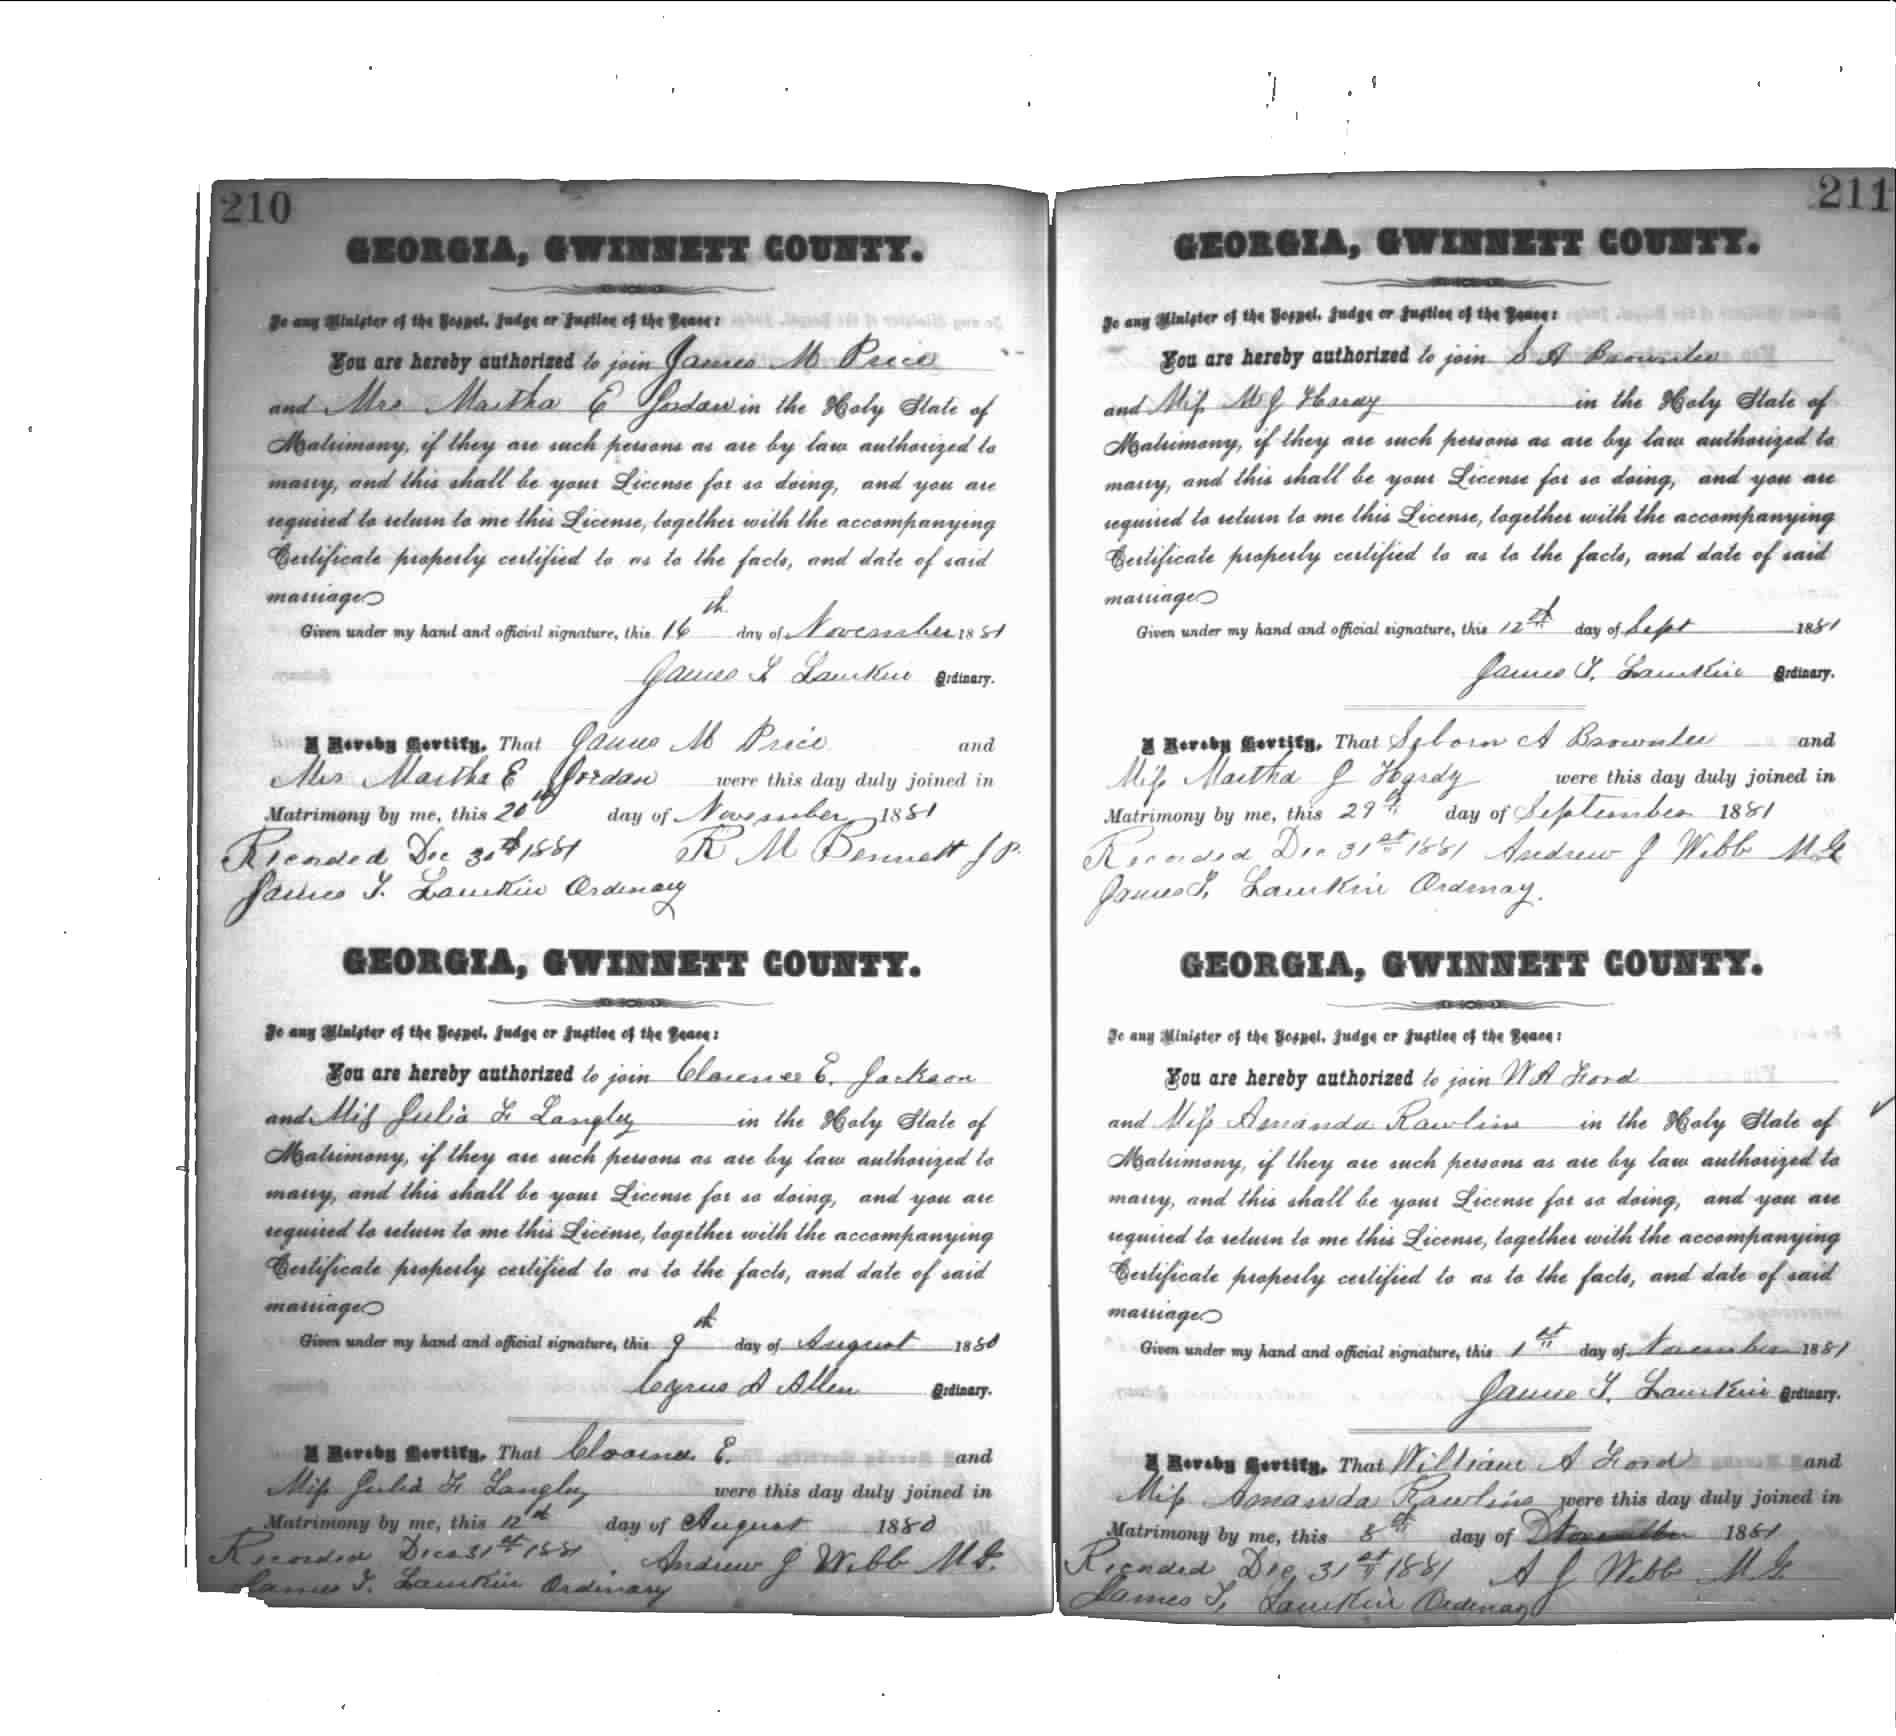 210
GEORGIA, GWINNETT COUNTY.
To any Minister of the Gospel, Judge or Justice of the Peace:
You are hereby authorized to join James M Price
and Mrs Martha E Jordan in the Holy State of
Matrimony, if they are such persons as are by law authorized to
marry, and this shall be your License for so doing, and you are
required to return to me this License, together with the accompanying
Certificate properly certified to as to the facts, and date of said
marriage
Given under my hand and official signature, this 16th day of November 1881
James T. Lamkin Ordinary.
I Hereby Certify, That James M Price and
Mrs Martha E Jordan were this day duly joined in
Matrimony by me, this 20th day of November 1881
Recorded Dec 31st 1881 R M Bennett J P.
James T. Lamkin Ordenary
GEORGIA, GWINNETT COUNTY.
To any Minister of the Gospel, Judge or Justice of the Peace:
You are hereby authorized to join Clarence E. Jackson
and Miss Julia F Langley in the Holy State of
Matrimony, if they are such persons as are by law authorized to
marry, and this shall be your License for so doing, and you are
required to return to me this License, together with the accompanying
Certificate properly certified to as to the facts, and date of said
marriage
Given under my hand and official signature, this 9th day of August 1880
Cyrus A Allen Ordinary.
I Hereby Certify, That E. and
Miss Julia F Langley were this day duly joined in
Matrimony by me, this 12th day of August 1880
Recorded Dec 31st 1881 Andrew J Webb M.G.
James T. Lamkin Ordinary
211
GEORGIA, GWINNETT COUNTY.
To any Minister of the Gospel, Judge or Justice of the Peace:
You are hereby authorized to join S A Brownlee
and Miss M J Hardy in the Holy State of
Matrimony, if they are such persons as are by law authorized to
marry, and this shall be your License for so doing, and you are
required to return to me this License, together with the accompanying
Certificate properly certified to as to the facts, and date of said
marriage
Given under my hand and official signature, this 12th day of Sept 1881
James T. Lamkin Ordinary.
I Hereby Certify, That Seborn A Brownlee and
Miss Martha J Hardy were this day duly joined in
Matrimony by me, this 29th day of September 1881
Recorded Dec 31st 1881 Andrew J Webb M.G.
James T. Lamkin Ordenay.
GEORGIA, GWINNETT COUNTY.
To any Minister of the Gospel, Judge or Justice of the Peace:
You are hereby authorized to join W A Ford
and Miss Amanda Rawlins in the Holy State of
Matrimony, if they are such persons as are by law authorized to
marry, and this shall be your License for so doing, and you are
required to return to me this License, together with the accompanying
Certificate properly certified to as to the facts, and date of said
marriage
Given under my hand and official signature, this 1st day of November 1881
James T. Lamkin Ordinary.
I Hereby Certify, That William A Ford and
Miss Amanda Rawlins were this day duly joined in
Matrimony by me, this 8th day of 1881
Recorded Dec 31st 1881 A J Webb M.G.
James T. Lamkin Ordenay